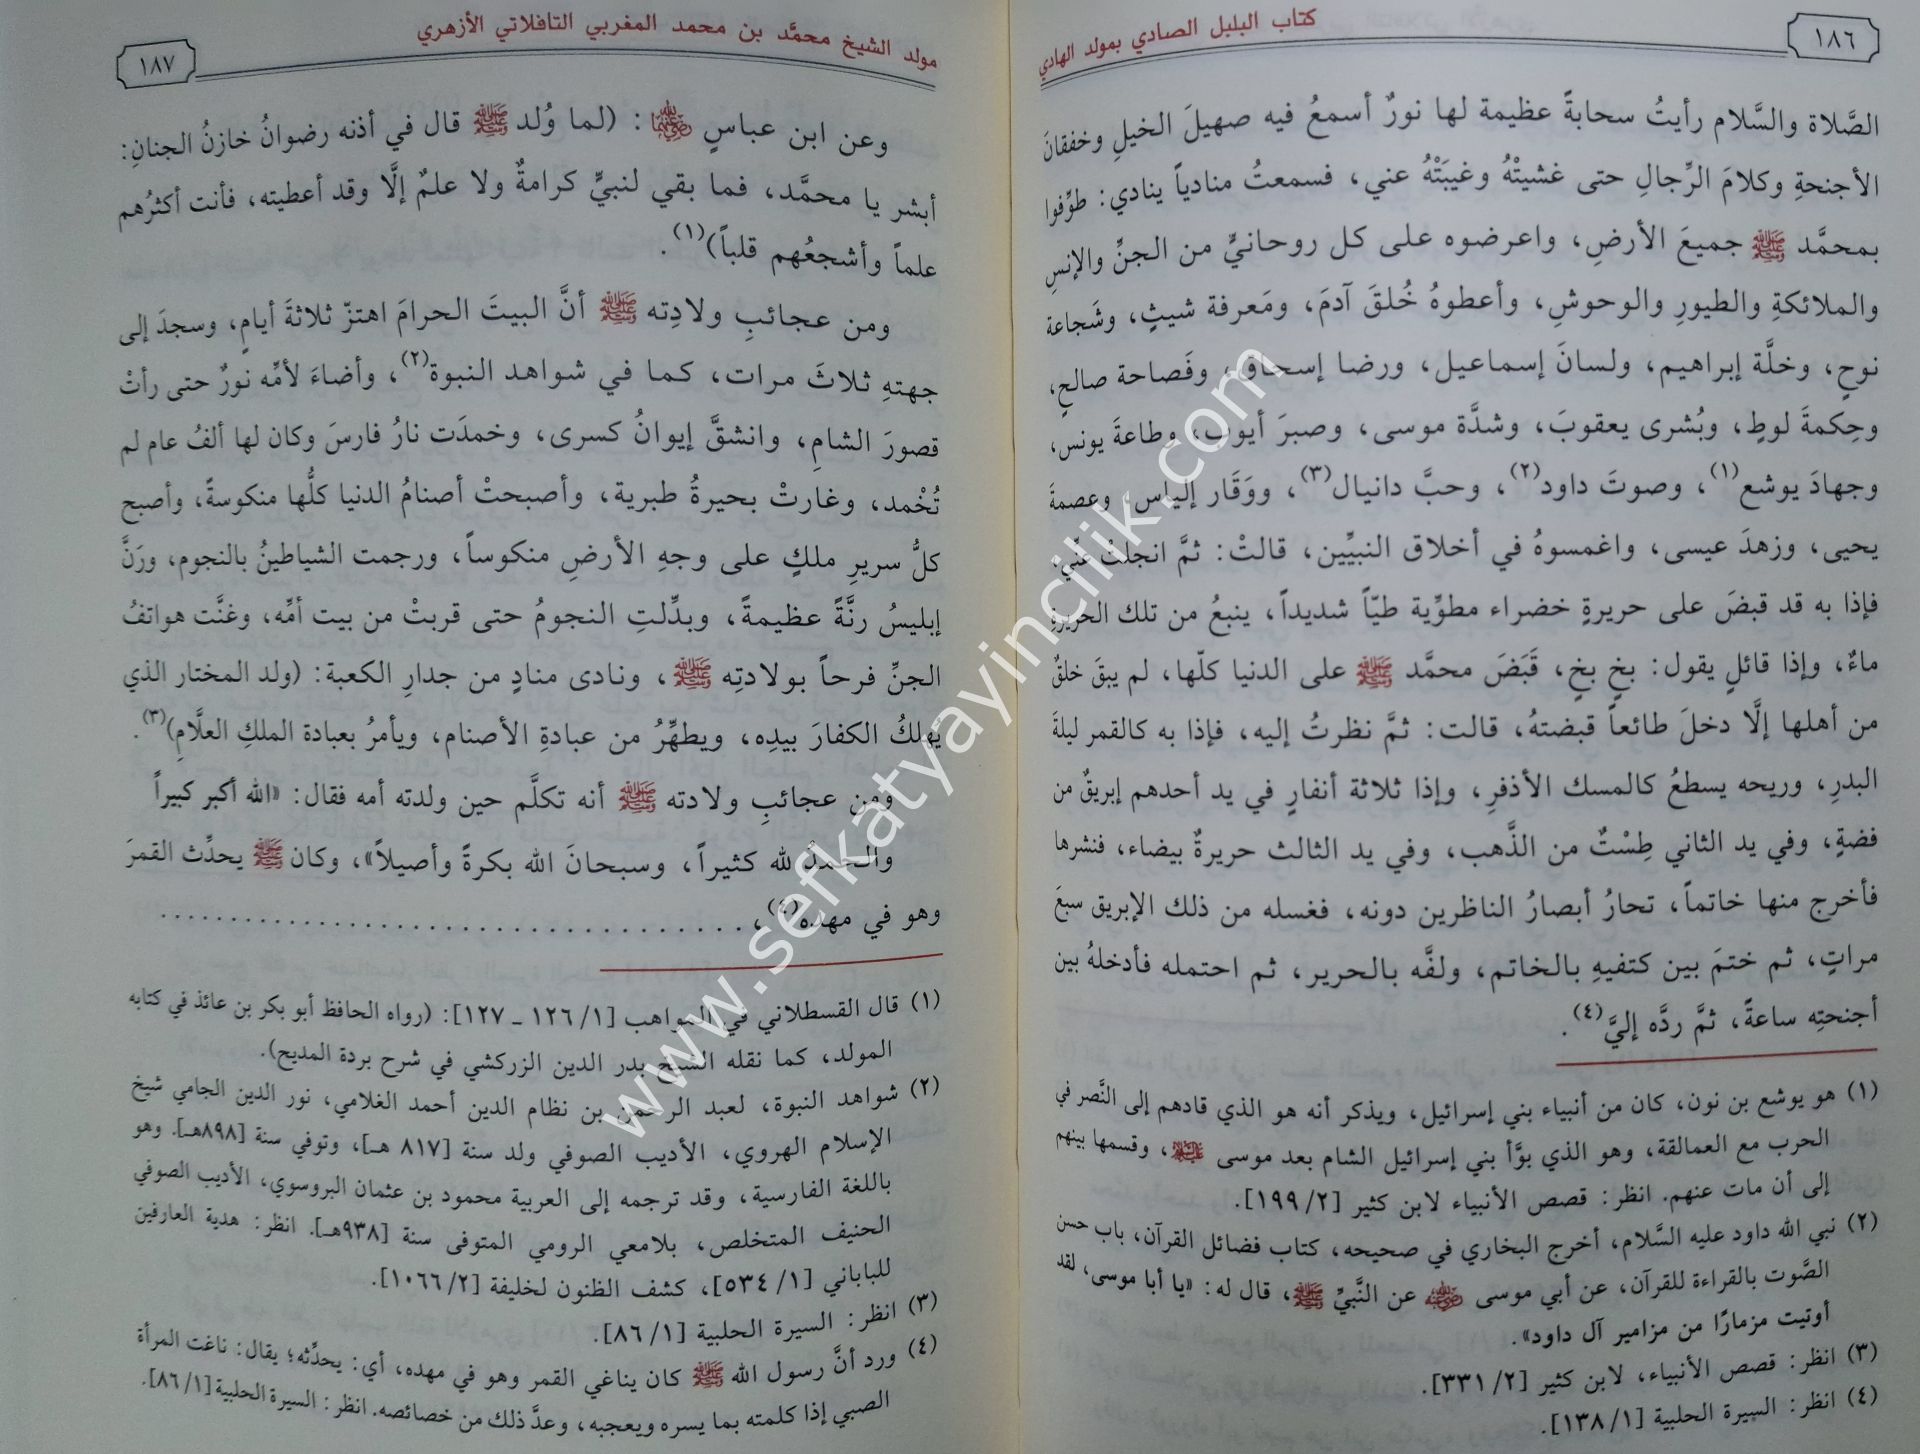 ١٨٦
كتاب البلبل الصادي بمولد الهادي
الصَّلاة والسَّلام رأيتُ سحابةً عظيمة لها نورٌ أسمعُ فيه صهيلَ الخيلِ وخفقانَ
الأجنحةِ وكلامَ الرِّجالِ حتى غشيتْهُ وغيبَتْهُ عني، فسمعتُ منادياً ينادي: طوِّفوا
بمحمَّد ﷺ جميعَ الأرضِ، واعرضوه على كل روحانيٍّ من الجنِّ والإنسِ
والملائكةِ والطيورِ والوحوشِ، وأعطوهُ خُلقَ آدمَ، ومَعرفة شيثٍ، وشَجاعة
نوحٍ، وخلَّة إبراهيم، ولسانَ إسماعيل، ورضا إسحاق، وفَصاحة صالحٍ،
وحِكمةَ لوطٍ، وبُشرى يعقوبَ، وشدَّة موسى، وصبرَ أيوب، وطاعةَ يونس،
وجهادَ يوشع(١)، وصوتَ داود(٢)، وحبَّ دانيال(٣)، ووَقَار إلياس، وعصمةَ
يحيى، وزهدَ عيسى، واغمسوهُ في أخلاق النبيِّين، قالتْ: ثمَّ انجلتْ عنِّي،
فإذا به قد قبضَ على حريرةٍ خضراء مطوِّية طيّاً شديداً، ينبعُ من تلك الحريرةِ
ماءٌ، وإذا قائل يقول: بخٍ بخٍ، قَبَضَ محمَّد ﷺ على الدنيا كلّها، لم يبقَ خلقٌ
من أهلها إلَّا دخلَ طائعاً قبضتهُ، قالت: ثمَّ نظرتُ إليه، فإذا به كالقمر ليلةَ
البدرِ، وريحه يسطعُ كالمسك الأذفرِ، وإذا ثلاثة أنفارٍ في يد أحدهم إبريقٌ من
فضةٍ، وفي يد الثاني طِسْتٌ من الذَّهب، وفي يد الثالث حريرةٌ بيضاء، فنشرها
فأخرج منها خاتماً، تحارُ أبصارُ الناظرين دونه، فغسله من ذلك الإبريق سبعَ
مراتٍ، ثم ختمَ بين كتفيهِ بالخاتم، ولفَّه بالحرير، ثم احتمله فأدخلهُ بين
أجنحتِه ساعةً، ثمَّ ردَّه إليَّ(٤).
(١) هو يوشع بن نون، كان من أنبياء بني إسرائيل، ويذكر أنه هو الذي قادهم إلى النَّصر في
الحرب مع العمالقة، وهو الذي بوَّأ بني إسرائيل الشام بعد موسى عليه السلام، وقسمها بينهم
إلى أن مات عنهم. انظر: قصص الأنبياء لابن كثير [٢/ ١٩٩].
(٢) نبي الله داود عليه السَّلام، أخرج البخاري في صحيحه، كتاب فضائل القرآن، باب حسن
الصَّوت بالقراءة للقرآن، عن أبي موسى رضي الله عنه عن النَّبيِّ ﷺ، قال له: «يا أبا موسى، لقد
أوتيت مزمارًا من مزامير آل داود».
(٣) انظر: قصص الأنبياء، لابن كثير [٢/ ٣٣١].
(٤) انظر: السيرة الحلبية [١/ ١٣٨].
مولد الشيخ محمَّد بن محمد المغربي التافلاتي الأزهري
١٨٧
وعن ابن عباسٍ رضي الله عنهما: (لما وُلد ﷺ قال في أذنه رضوانُ خازنُ الجنانِ:
أبشر يا محمَّد، فما بقي لنبيٍّ كرامةٌ ولا علمٌ إلَّا وقد أعطيته، فأنت أكثرُهم
علماً وأشجعُهم قلباً)(١).
ومن عجائبِ ولادِته ﷺ أنَّ البيتَ الحرامَ اهتزّ ثلاثةَ أيامٍ، وسجدَ إلى
جهتهِ ثلاثَ مرات، كما في شواهد النبوة(٢)، وأضاءَ لأمِّه نورٌ حتى رأتْ
قصورَ الشامِ، وانشقَّ إيوانُ كسرى، وخمدَت نارُ فارسَ وكان لها ألفُ عام لم
تُخْمد، وغارتْ بحيرةُ طبرية، وأصبحتْ أصنامُ الدنيا كلُّها منكوسةً، وأصبح
كلُّ سريرِ ملكٍ على وجهِ الأرضِ منكوساً، ورجمت الشياطينُ بالنجوم، ورَنَّ
إبليسُ رنَّةً عظيمةً، وبدِّلتِ النجومُ حتى قربتْ من بيت أمِّه، وغنَّت هواتفُ
الجنِّ فرحاً بولادتِه ﷺ، ونادى منادٍ من جدارِ الكعبة: (ولد المختار الذي
يهلكُ الكفارَ بيدِه، ويطهِّرُ من عبادةِ الأصنام، ويأمرُ بعبادة الملكِ العلَّامِ)(٣).
ومن عجائبِ ولادته ﷺ أنه تكلَّم حين ولدته أمه فقال: «الله أكبر كبيراً
والحمدُ لله كثيراً، وسبحانَ الله بكرةً وأصيلاً»، وكان ﷺ يحدِّث القمرَ
وهو في مهده(٤)، ........................................
(١) قال القسطلاني في المواهب [١/ ١٢٦ ـ ١٢٧]: (رواه الحافظ أبو بكر بن عائذ في كتابه
المولد، كما نقله الشيخ بدر الدين الزركشي في شرح بردة المديح).
(٢) شواهد النبوة، لعبد الرحمن بن نظام الدين أحمد الغلامي، نور الدين الجامي شيخ
الإسلام الهروي، الأديب الصوفي ولد سنة [٨١٧ هـ]، وتوفي سنة [٨٩٨هـ]. وهو
باللغة الفارسية، وقد ترجمه إلى العربية محمود بن عثمان البروسوي، الأديب الصوفي
الحنيف المتخلص، بلامعي الرومي المتوفى سنة [٩٣٨هـ]. انظر: هدية العارفين
للباباني [١/ ٥٣٤]، كشف الظنون لخليفة [٢/ ١٠٦٦].
(٣) انظر: السيرة الحلبية [١/ ٨٦].
(٤) ورد أنَّ رسول الله ﷺ كان يناغي القمر وهو في مهده، أي: يحدِّثه؛ يقال: ناغت المرأة
الصبي إذا كلمته بما يسره ويعجبه، وعدَّ ذلك من خصائصه. انظر: السيرة الحلبية [١/ ٨٦].
www.sefkatyayincilik.com